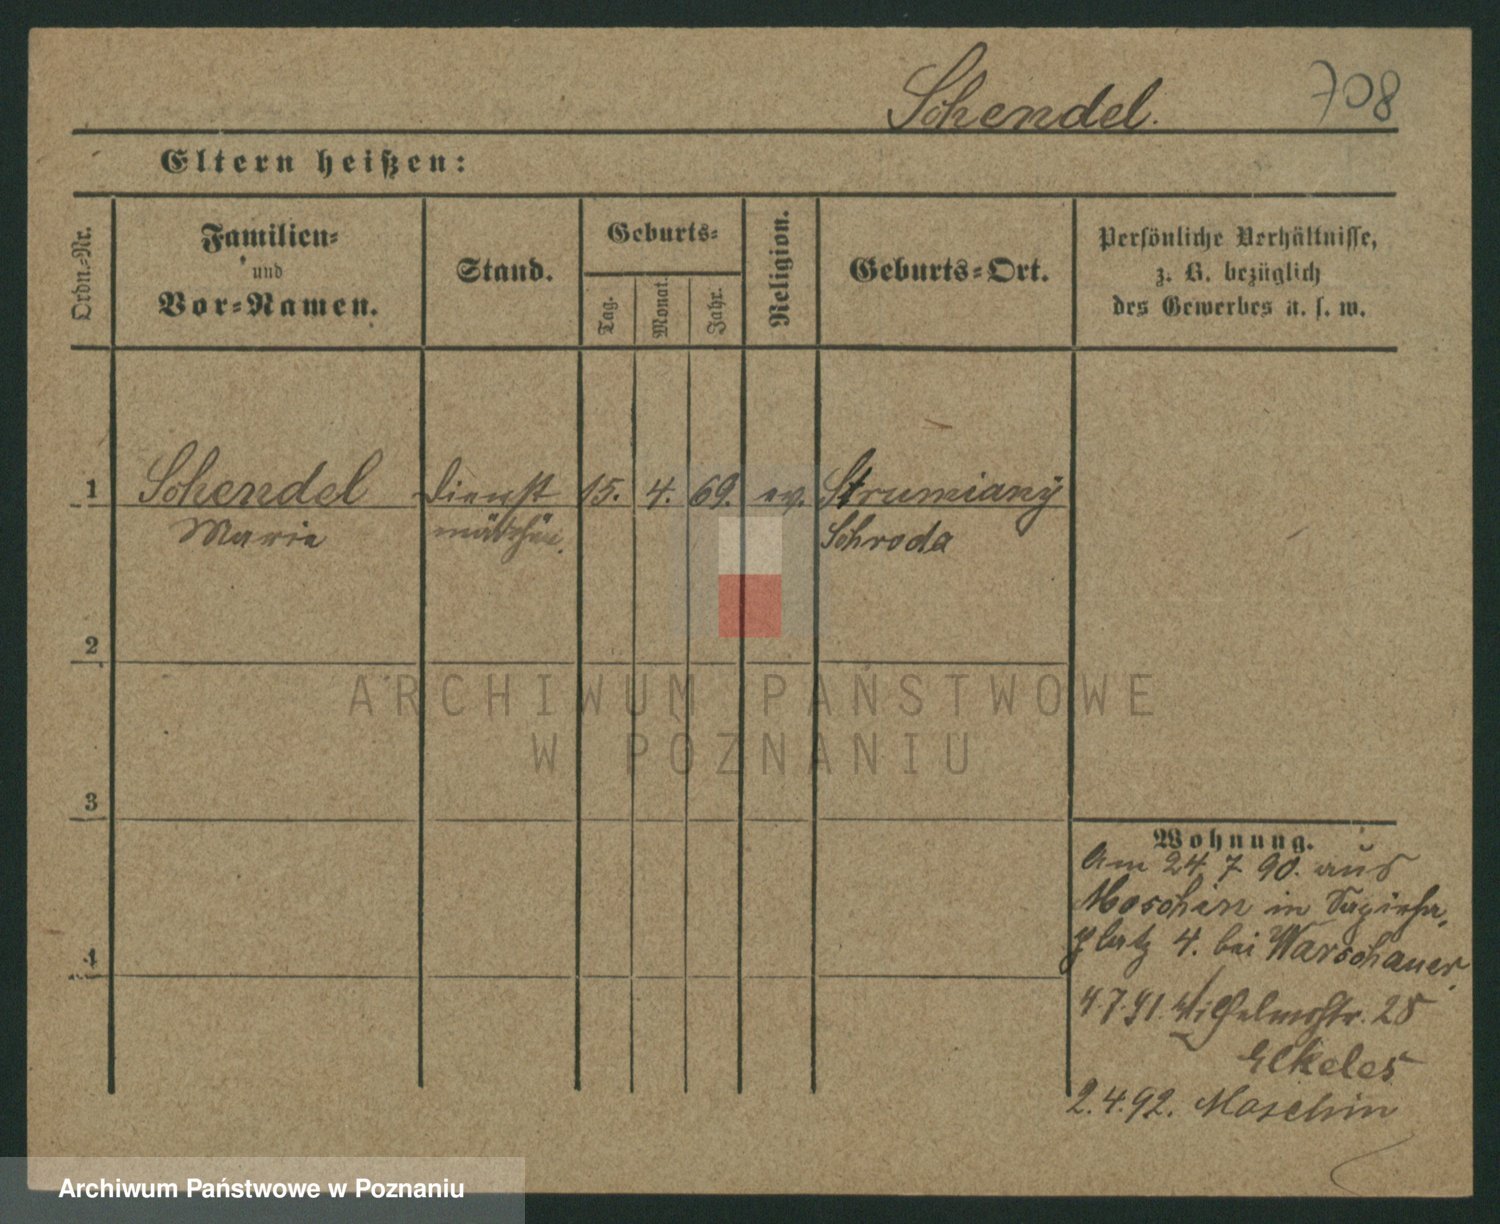 Schendel. 708
Eltern heißen:
Ordn.-Nr.
Familien-
und
Vor-Namen.
Stand.
Geburts-
Tag.
Monat.
Jahr.
Religion.
Geburts-Ort.
Persönliche Verhältnisse,
z. B. bezüglich
des Gewerbes u. s. w.
1 Schendel Dienst 15. 4. 69. ev. Strumiany
Marie mädchen. Schroda
2
3
4
Wohnung.
Am 24. 7. 90. aus
Moschin in
platz 4. bei Warschauer.
4.7.91. Wilhelmstr. 28
Elkeles
2.4.92. Moschin
ARCHIWUM PAŃSTWOWE
W POZNANIU
Archiwum Państwowe w Poznaniu